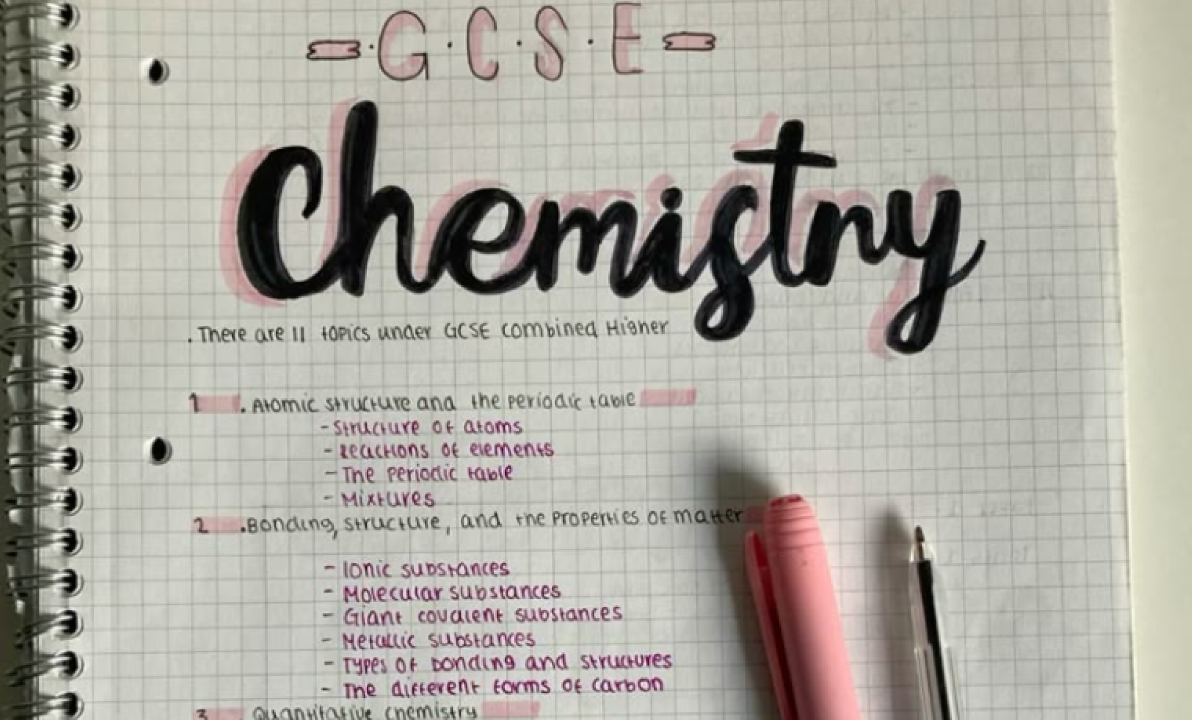 G.C.S.E
Chemistry
. There are 11 topics under GCSE combined Higher
1 . Atomic structure and the periodic table
- Structure of atoms
- Reactions of elements
- The periodic table
- Mixtures
2 .Bonding, structure, and the properties of matter
- Ionic substances
- Molecular substances
- Giant covalent substances
- Metallic substances
- Types of bonding and structures
- The different forms of carbon
3 . Quantitative chemistry